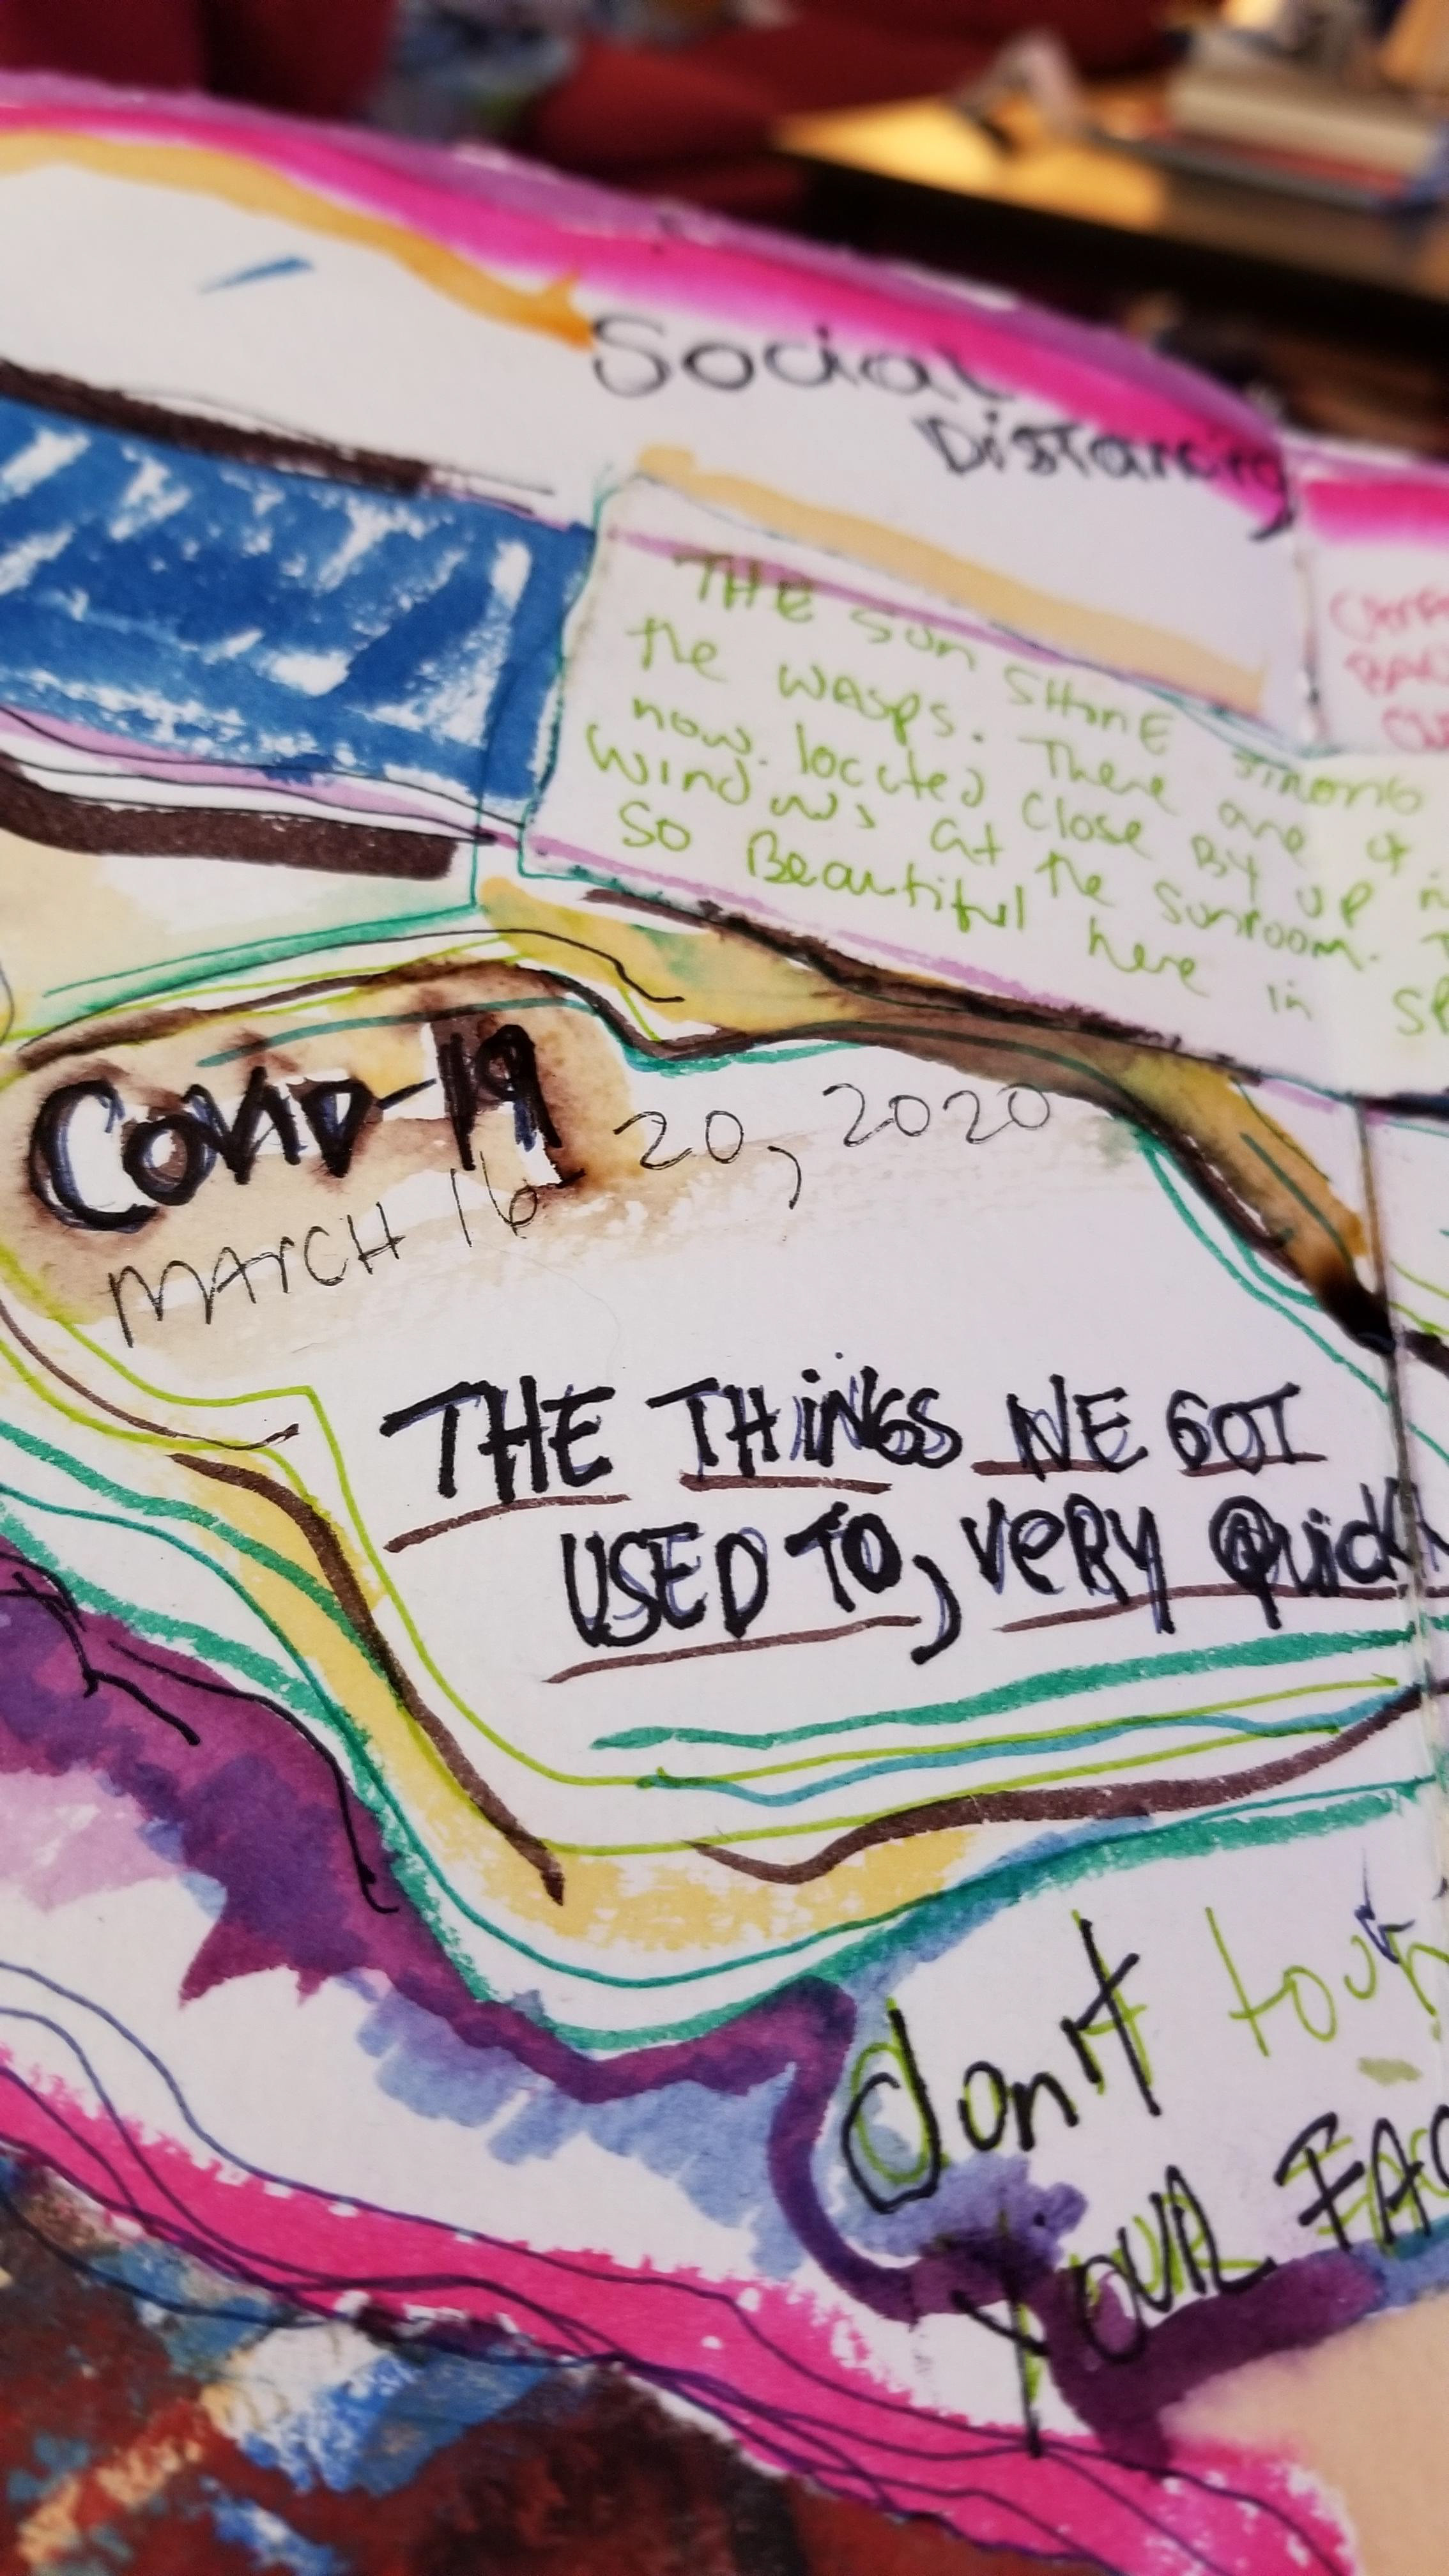 Social
Distancing
THE SUN SHONE STRONG
the wasps. There are 4
now located close by up
windows at the sunroom.
so Beautiful here in
COVID-19
MARCH 16 20, 2020
THE THINGS WE GOT
USED TO, VERY Quick
don't touch
YOUR FAC